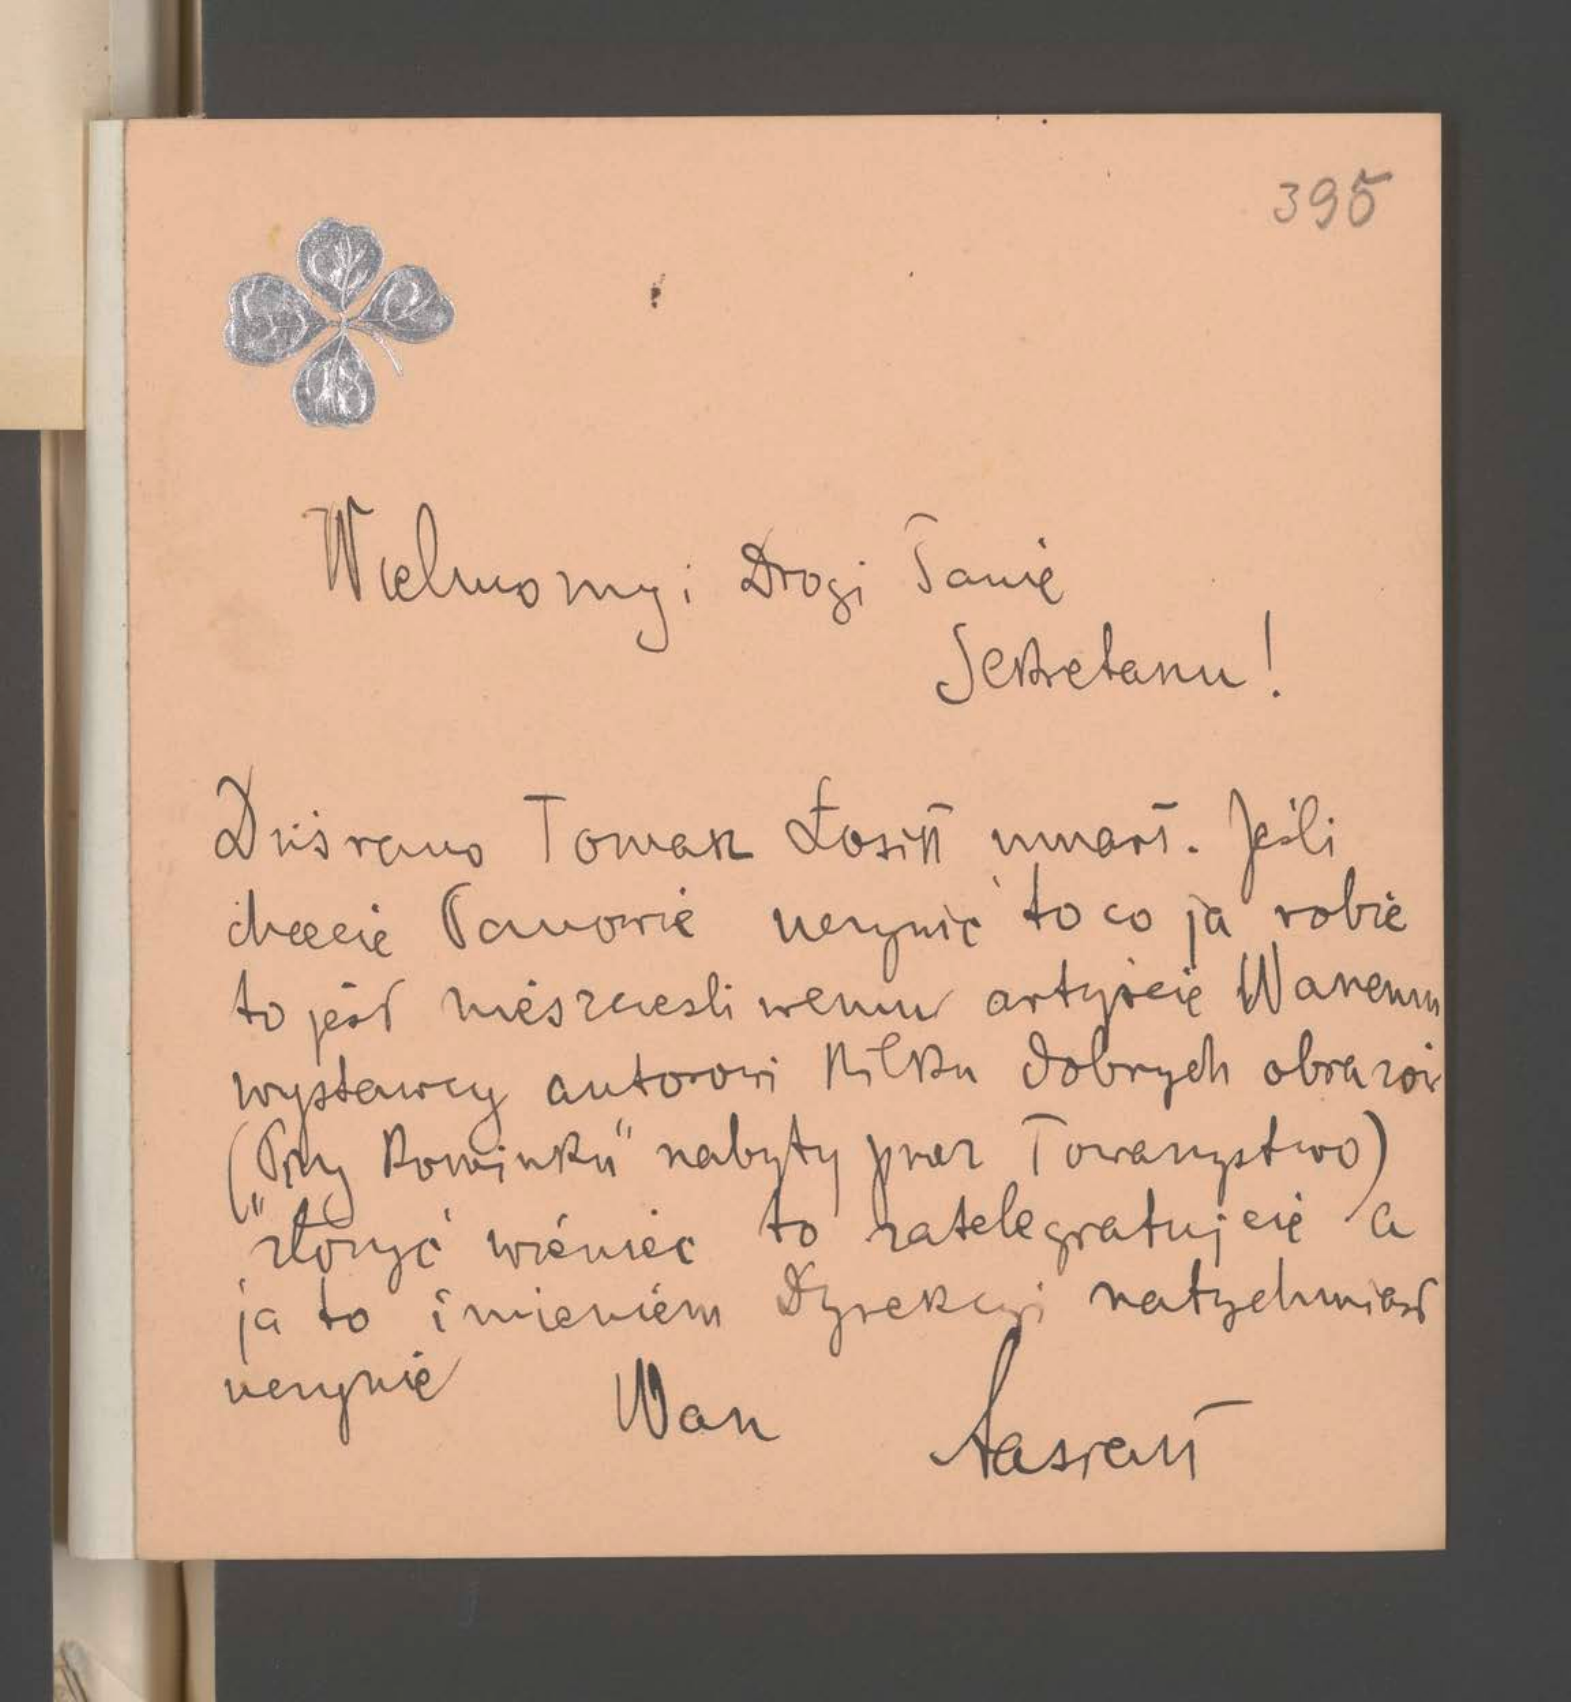 395
Wielmożny i Drogi Panie
Sekretarzu!
Dziś rano Tomasz Łosik umarł. Jeśli
chcecie Panowie uczynić to co ja robie
to jest nieszczesliwemu artyście Waszemu
wystawcy autorowi kilku dobrych obrazów
("Przy Kominku" nabyty przez Towarzystwo)
złożyć wieniec to zatelegrafujcie a
ja to imieniem Dyrekcyi natychmiast
uczynię
Wasz